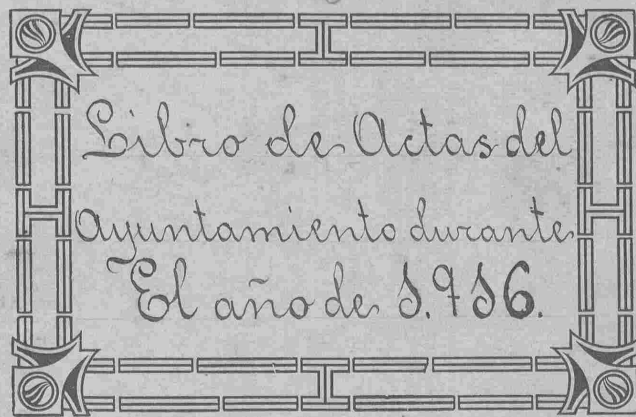 Libro de Actas del
Ayuntamiento durante
El año de 1.916.